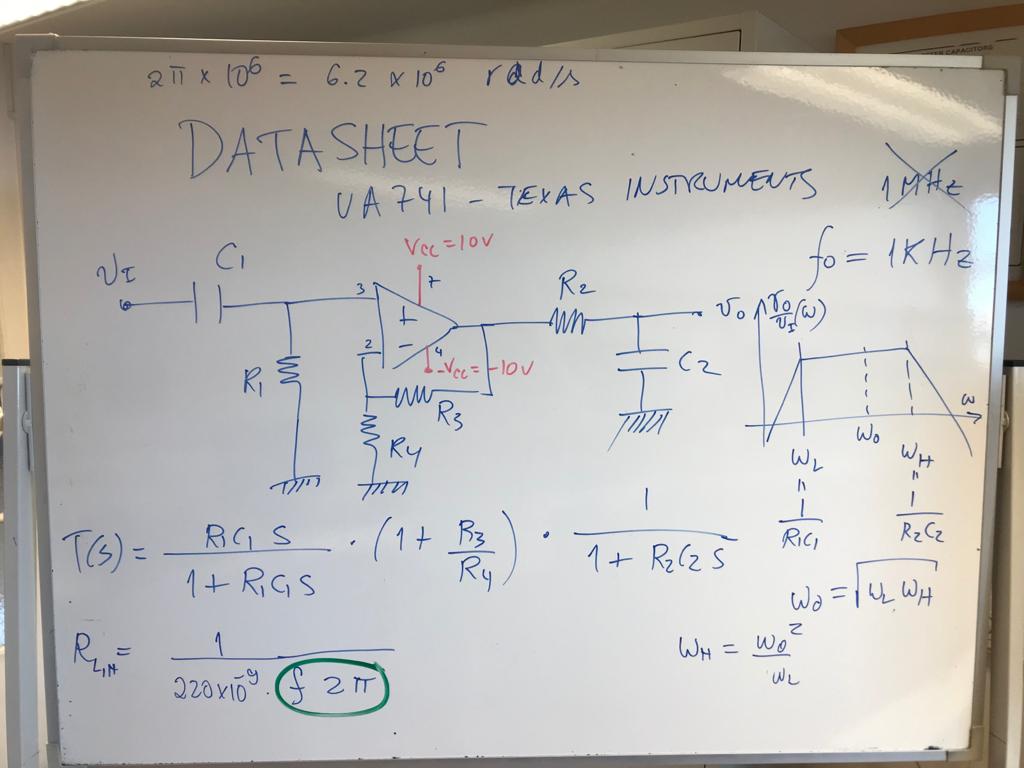 ER CAPACITORS
2π × 10⁶ = 6.2 × 10⁶ rad/s
DATASHEET
UA741 - TEXAS INSTRUMENTS
1MHz
f₀ = 1KHz
Vcc = 10V
v_I
C₁
3
7
+
-
2
4
-Vcc = -10V
R₁
R₃
R₄
R₂
C₂
v₀
v₀/v_I (ω)
ω
ω_L
ω₀
ω_H
= 1/(R₁C₁)
= 1/(R₂C₂)
T(s) = R₁C₁ s / (1 + R₁C₁ s) · (1 + R₃/R₄) · 1 / (1 + R₂C₂ s)
ω₀ = √(ω_L ω_H)
R_L,H = 1 / (220×10⁻⁹ · f 2π)
ω_H = ω₀² / ω_L